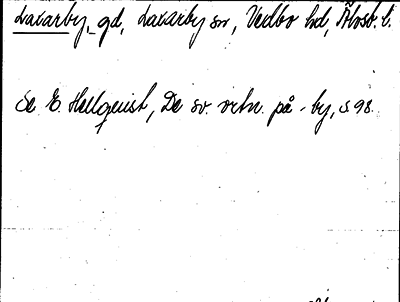 Laxarby, gd, Laxarby sn, Vedbo hd, Älvsb. l.
Se E. Hellquist, De sv. ortn. på -by, s 98.